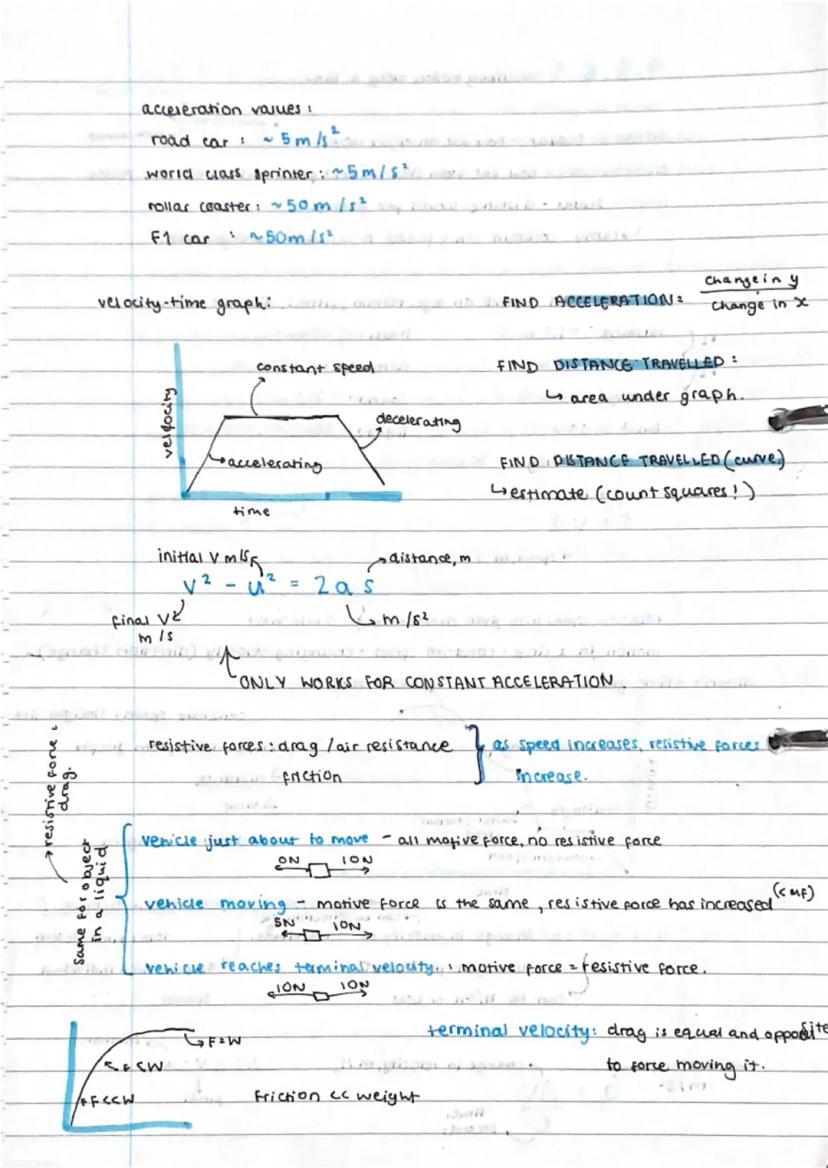 acceleration values :
road car : ~ 5 m/s²
world class sprinter : ~5m/s²
rollar coaster : ~50 m/s²
F1 car : ~50m/s²
velocity-time graph:
FIND ACCELERATION = change in y
change in x
constant speed
FIND DISTANCE TRAVELLED :
↳ area under graph.
velocity
decelerating
accelerating
FIND DISTANCE TRAVELLED (curve)
↳ estimate (count squares!)
time
initial V m/s
distance, m
v² - u² = 2as
final V
m/s
m/s²
ONLY WORKS FOR CONSTANT ACCELERATION.
resistive forces : drag / air resistance
friction
as speed increases, resistive forces
increase.
→ resistive force :
drag.
same for object
in a liquid
vehicle just about to move - all motive force, no resistive force
0N 10N
vehicle moving - motive force is the same, resistive force has increased (< MF)
5N 10N
vehicle reaches terminal velocity : motive force = resistive force.
10N 10N
F=W
F<W
F<<W
Friction << weight
terminal velocity: drag is equal and opposite
to force moving it.